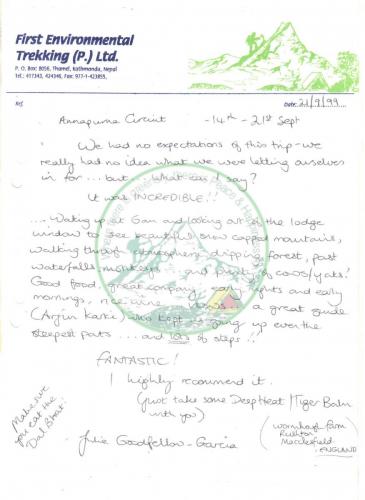 First Environmental
Trekking (P.) Ltd.
P. O. Box 8056, Thamel, Kathmandu, Nepal
Tel.: 417343, 424346, Fax: 977-1-423855,
Ref.
Date: 21/9/99
Annapurna Circuit - 14th - 21st Sept
We had no expectations of this trip - we
really had no idea what we were letting ourselves
in for ... but ... What can I say?
It was INCREDIBLE!!
... Waking up at 5am and looking out of the lodge
window to see beautiful snow capped mountains,
walking through atmospheric dripping forest, past
waterfalls, monkeys and plenty of cows/yaks!
Good food, great company, early nights and early
mornings, rice wine, a great guide
(Arjun Karki) who kept us going up even the
steepest parts ... and lots of steps!!
FANTASTIC!
I highly recommend it.
(Just take some Deep Heat / Tiger Balm
with you)
Make sure
you eat the
Dal Bhat!
Julie Goodfellow-Garcia
Farm
Macclesfield
ENGLAND